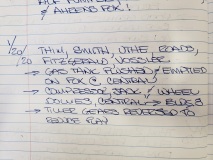 & AHEAD FOX!
1/20/20 THIN, SMITH, UTHE, ROADS,
FITZGERALD, VOSSLER
→ GAS TANK FLUSHED / EMPTIED
ON FOX @ CENTRAL
→ COMPRESSOR, JACK, / WHEEL
DOLLIES, CENTRAL → BLDG 8
→ TILLER GEARS REVERSED TO
REDUCE PLAY